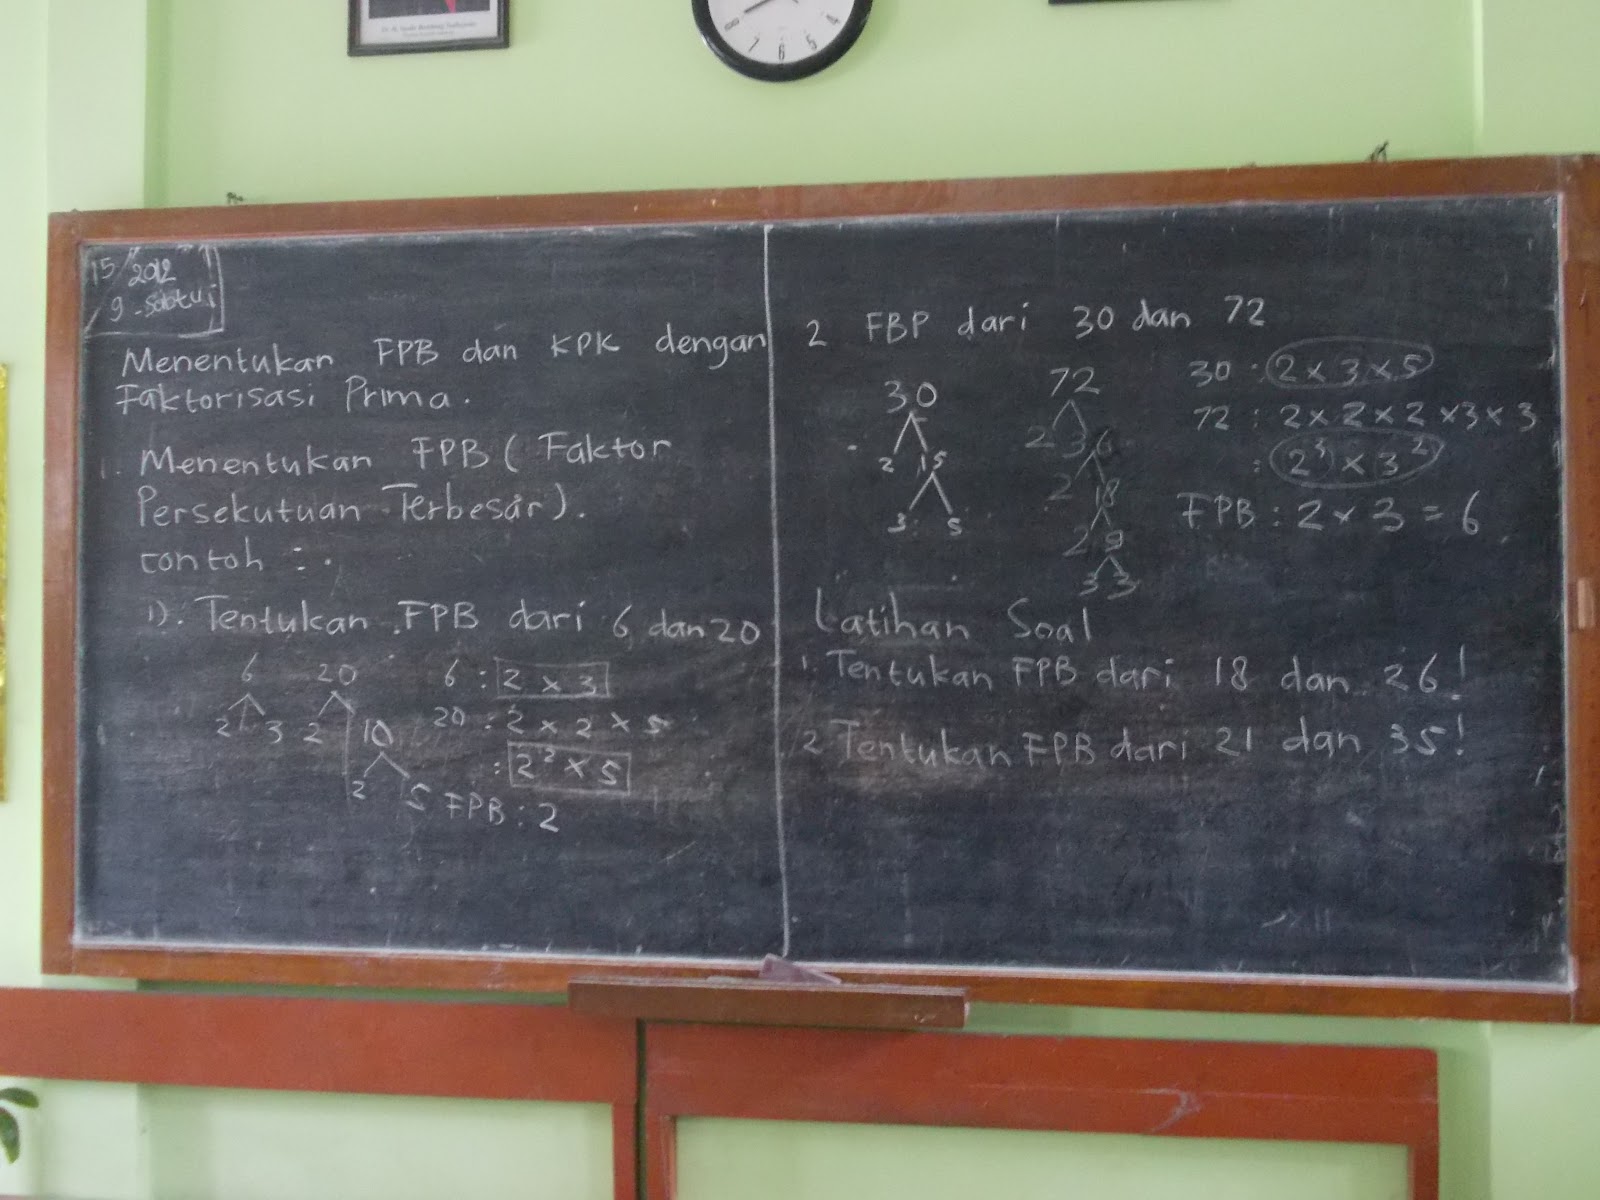 15 / 2012
9 - Sabtu
Menentukan FPB dan KPK dengan
Faktorisasi Prima.
1. Menentukan FPB ( Faktor
Persekutuan Terbesar ).
Contoh :
1). Tentukan FPB dari 6 dan 20
6 20 6 : 2 x 3
2 3 2 10 20 : 2 x 2 x 5
: 2² x 5
2 5 FPB : 2
2 FBP dari 30 dan 72
30 72 30 : 2 x 3 x 5
2 36 72 : 2 x 2 x 2 x 3 x 3
2 15 2 18 : 2³ x 3²
3 5 2 9 FPB : 2 x 3 = 6
3 3
Latihan Soal
1. Tentukan FPB dari 18 dan 26!
2 Tentukan FPB dari 21 dan 35!
8 7 6 5 4